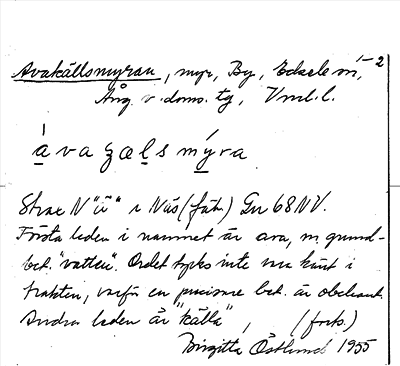 1-2
Avakällsmyran, myr, By, Edsele sn,
Ång. v. doms. tg, Vml.l.
ava zæls mýra
Strax N "ü" i Näs (fäb.) Gn 68 NV.
Första leden i namnet är ava, m. grund-
bet. "vatten". Ordet tycks inte nu känt i
trakten, varför en precisare bet. är obekant.
Andra leden är "källa", (forts.)
Birgitta Östlund 1955